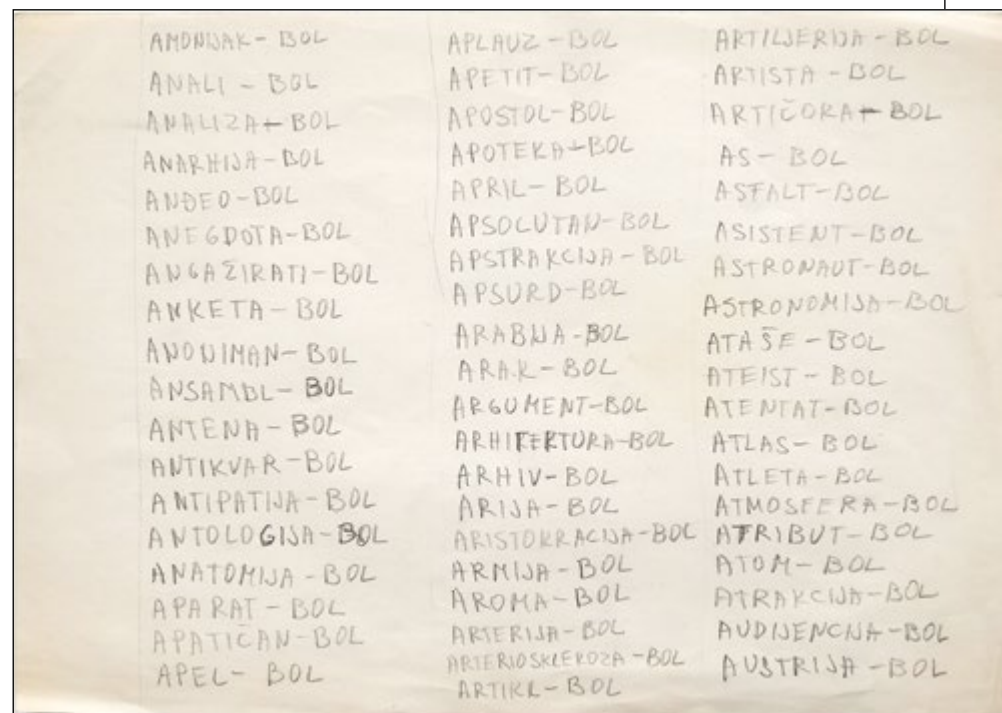 AMONIJAK - BOL
ANALI - BOL
ANALIZA - BOL
ANARHIJA - BOL
ANĐEO - BOL
ANEGDOTA - BOL
ANGAŽIRATI - BOL
ANKETA - BOL
ANONIMAN - BOL
ANSAMBL - BOL
ANTENA - BOL
ANTIKVAR - BOL
ANTIPATIJA - BOL
ANTOLOGIJA - BOL
ANATOMIJA - BOL
APARAT - BOL
APATIČAN - BOL
APEL - BOL
APLAUZ - BOL
APETIT - BOL
APOSTOL - BOL
APOTEKA - BOL
APRIL - BOL
APSOLUTAN - BOL
APSTRAKCIJA - BOL
APSURD - BOL
ARABIJA - BOL
ARAK - BOL
ARGUMENT - BOL
ARHITEKTURA - BOL
ARHIV - BOL
ARIJA - BOL
ARISTOKRACIJA - BOL
ARMIJA - BOL
AROMA - BOL
ARTERIJA - BOL
ARTERIOSKLEROZA - BOL
ARTIKL - BOL
ARTILJERIJA - BOL
ARTISTA - BOL
ARTIČOKA - BOL
AS - BOL
ASFALT - BOL
ASISTENT - BOL
ASTRONAUT - BOL
ASTRONOMIJA - BOL
ATAŠE - BOL
ATEIST - BOL
ATENTAT - BOL
ATLAS - BOL
ATLETA - BOL
ATMOSFERA - BOL
ATRIBUT - BOL
ATOM - BOL
ATRAKCIJA - BOL
AUDIJENCIJA - BOL
AUSTRIJA - BOL